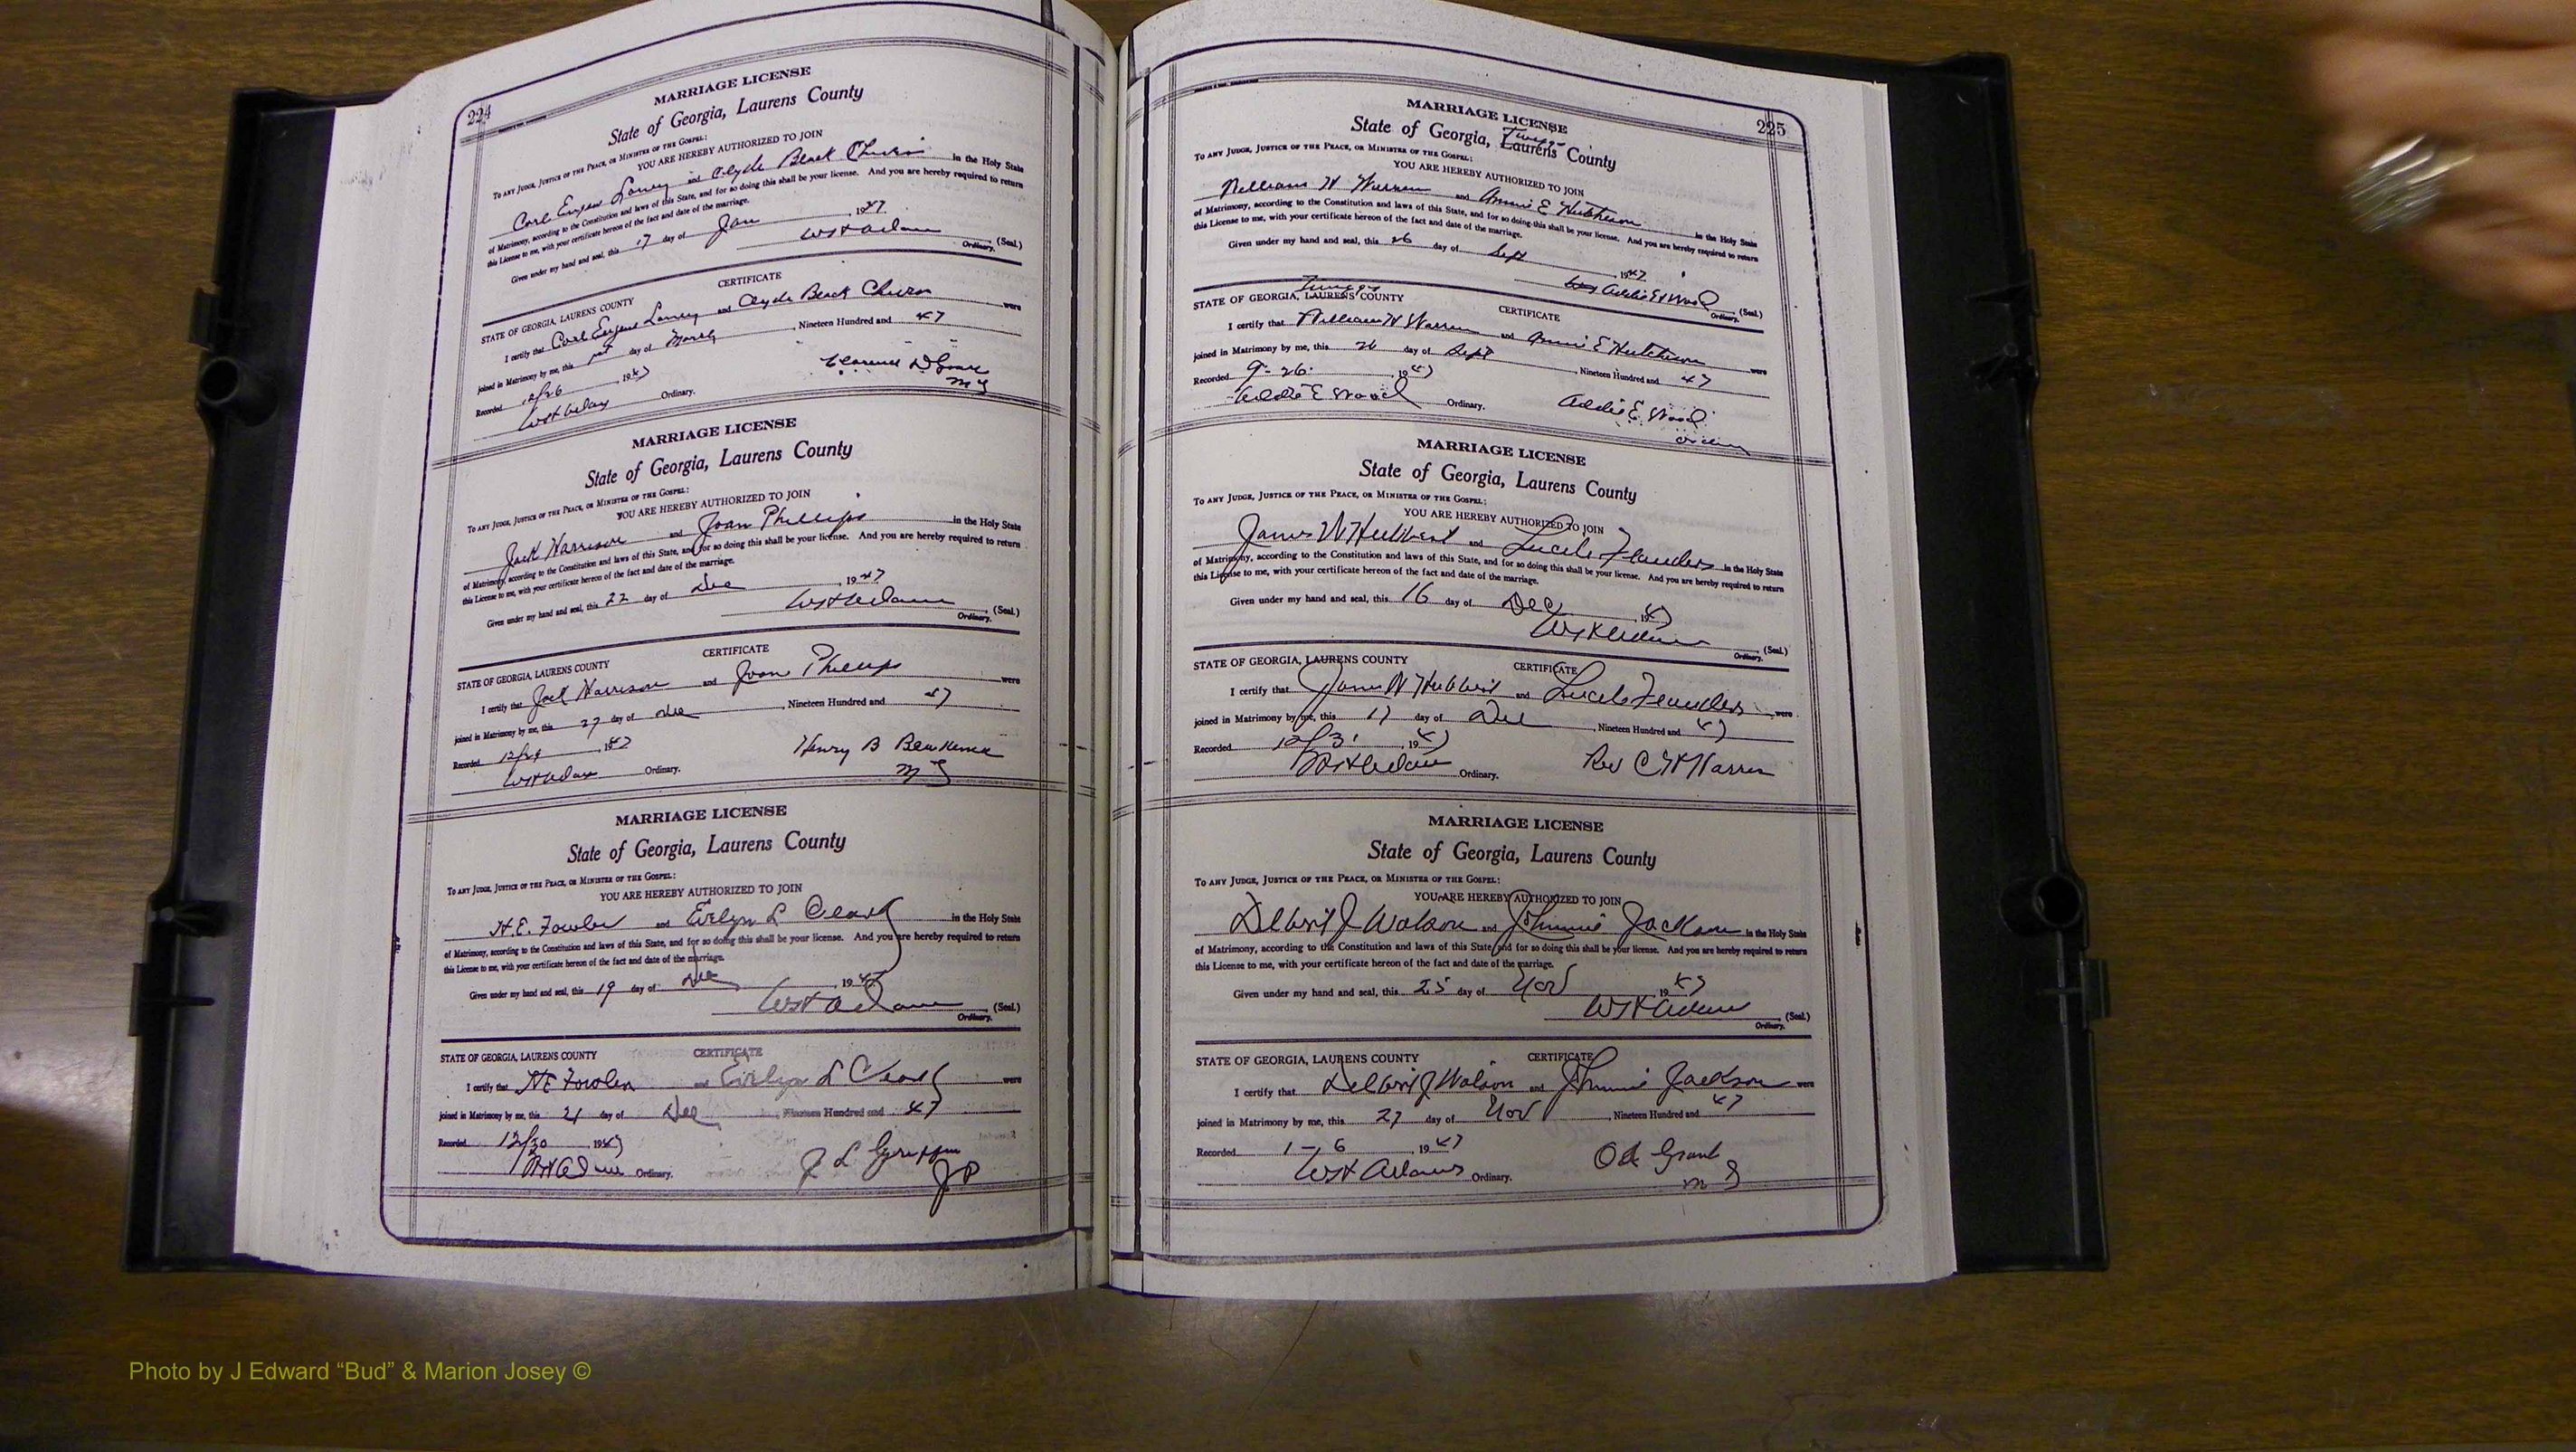 224
MARRIAGE LICENSE
State of Georgia, Laurens County
To ANY JUDGE, JUSTICE OF THE PEACE, OR MINISTER OF THE GOSPEL:
YOU ARE HEREBY AUTHORIZED TO JOIN
Carl Eugene and Clyde Black in the Holy State
of Matrimony, according to the Constitution and laws of this State, and for so doing this shall be your license. And you are hereby required to return
this License to me, with your certificate hereon of the fact and date of the marriage.
Given under my hand and seal, this 17 day of Jan , 1947
(Seal.)
Ordinary.
CERTIFICATE
STATE OF GEORGIA, LAURENS COUNTY
I certify that Carl Eugene and Clyde Black were
joined in Matrimony by me, this day of March , Nineteen Hundred and 47
Recorded 12/26 , 1947
M G
Ordinary.
MARRIAGE LICENSE
State of Georgia, Laurens County
To ANY JUDGE, JUSTICE OF THE PEACE, OR MINISTER OF THE GOSPEL:
YOU ARE HEREBY AUTHORIZED TO JOIN
Jack Harrison and Joan Phillips in the Holy State
of Matrimony, according to the Constitution and laws of this State, and for so doing this shall be your license. And you are hereby required to return
this License to me, with your certificate hereon of the fact and date of the marriage.
Given under my hand and seal, this 22 day of Dec , 1947
(Seal.)
Ordinary.
CERTIFICATE
STATE OF GEORGIA, LAURENS COUNTY
I certify that Jack Harrison and Joan Phillips were
joined in Matrimony by me, this 27 day of Dec , Nineteen Hundred and 47
Recorded 12/29 , 1947
Henry B
Ordinary. M G
MARRIAGE LICENSE
State of Georgia, Laurens County
To ANY JUDGE, JUSTICE OF THE PEACE, OR MINISTER OF THE GOSPEL:
YOU ARE HEREBY AUTHORIZED TO JOIN
H.E. Fowler and Evelyn L Clark in the Holy State
of Matrimony, according to the Constitution and laws of this State, and for so doing this shall be your license. And you are hereby required to return
this License to me, with your certificate hereon of the fact and date of the marriage.
Given under my hand and seal, this 19 day of Dec , 1947
W H Adams (Seal.)
Ordinary.
CERTIFICATE
STATE OF GEORGIA, LAURENS COUNTY
I certify that H E Fowler and Evelyn L Clark were
joined in Matrimony by me, this 21 day of Dec , Nineteen Hundred and 47
Recorded 12/30 , 1947
J L
Ordinary. J P
225
MARRIAGE LICENSE
State of Georgia, Twiggs Laurens County
To ANY JUDGE, JUSTICE OF THE PEACE, OR MINISTER OF THE GOSPEL:
YOU ARE HEREBY AUTHORIZED TO JOIN
William H Warren and Annie E Hutcheson in the Holy State
of Matrimony, according to the Constitution and laws of this State, and for so doing this shall be your license. And you are hereby required to return
this License to me, with your certificate hereon of the fact and date of the marriage.
Given under my hand and seal, this 26 day of Sept , 1947
Addie E Wood (Seal.)
Ordinary.
CERTIFICATE
STATE OF GEORGIA, Twiggs LAURENS COUNTY
I certify that William H Warren and Annie E Hutcheson were
joined in Matrimony by me, this 26 day of Sept , Nineteen Hundred and 47
Recorded 9-26 , 1947
Addie E Wood Ordinary. Addie E Wood
Ordinary
MARRIAGE LICENSE
State of Georgia, Laurens County
To ANY JUDGE, JUSTICE OF THE PEACE, OR MINISTER OF THE GOSPEL:
YOU ARE HEREBY AUTHORIZED TO JOIN
James W Hubbert and Lucile Flanders in the Holy State
of Matrimony, according to the Constitution and laws of this State, and for so doing this shall be your license. And you are hereby required to return
this License to me, with your certificate hereon of the fact and date of the marriage.
Given under my hand and seal, this 16 day of Dec , 1947
(Seal.)
Ordinary.
CERTIFICATE
STATE OF GEORGIA, LAURENS COUNTY
I certify that James W Hubbert and Lucile Flanders were
joined in Matrimony by me, this 17 day of Dec , Nineteen Hundred and 47
Recorded 12/31 , 1947
Ordinary. Rev
MARRIAGE LICENSE
State of Georgia, Laurens County
To ANY JUDGE, JUSTICE OF THE PEACE, OR MINISTER OF THE GOSPEL:
YOU ARE HEREBY AUTHORIZED TO JOIN
J Watson and Johnnie Jackson in the Holy State
of Matrimony, according to the Constitution and laws of this State, and for so doing this shall be your license. And you are hereby required to return
this License to me, with your certificate hereon of the fact and date of the marriage.
Given under my hand and seal, this 25 day of Nov , 1947
W H Adams (Seal.)
Ordinary.
CERTIFICATE
STATE OF GEORGIA, LAURENS COUNTY
I certify that J Watson and Johnnie Jackson were
joined in Matrimony by me, this 27 day of Nov , Nineteen Hundred and 47
Recorded 1-6 , 1947
W H Adams Ordinary. Grant
M G
Photo by J Edward “Bud” & Marion Josey ©